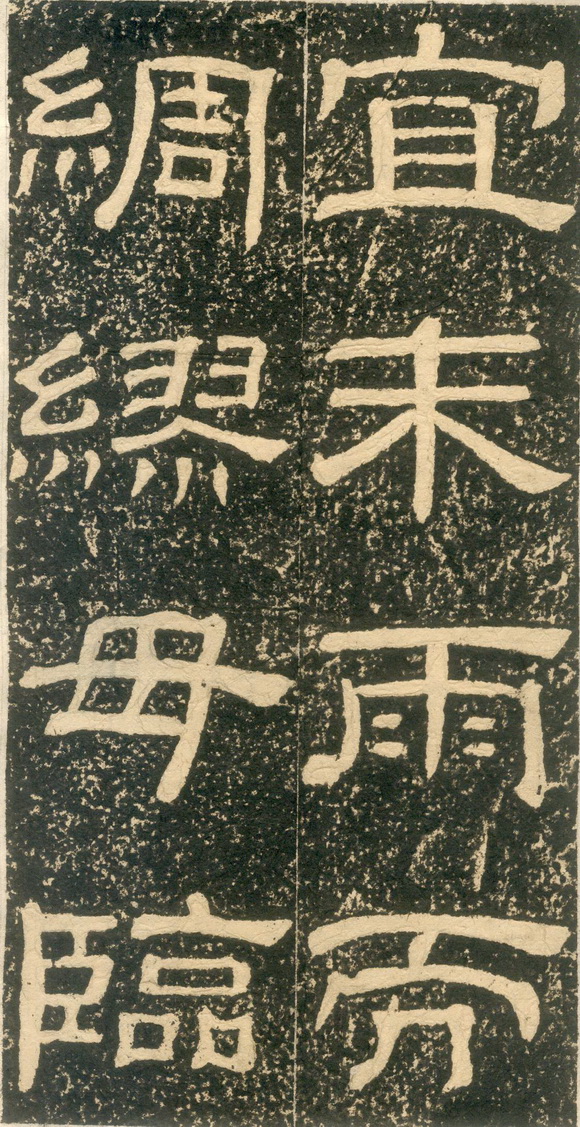 宜未雨而
綢繆毋臨